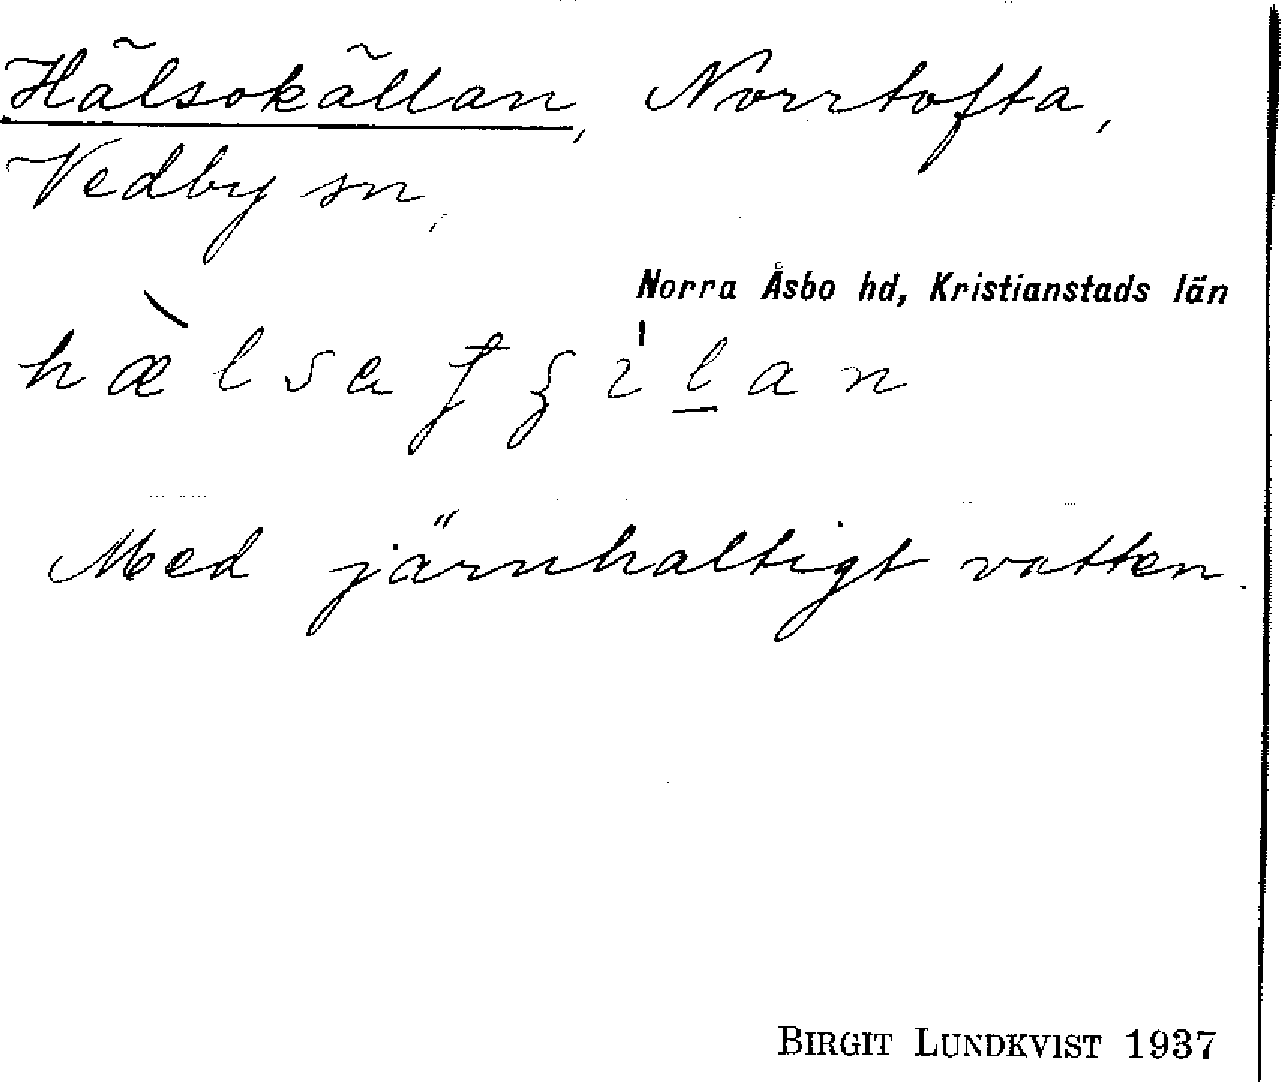 Hälsokällan, Norrtofta,
Vedby sn,
Norra Åsbo hd, Kristianstads län
Med järnhaltigt vatten.
BIRGIT LUNDKVIST 1937